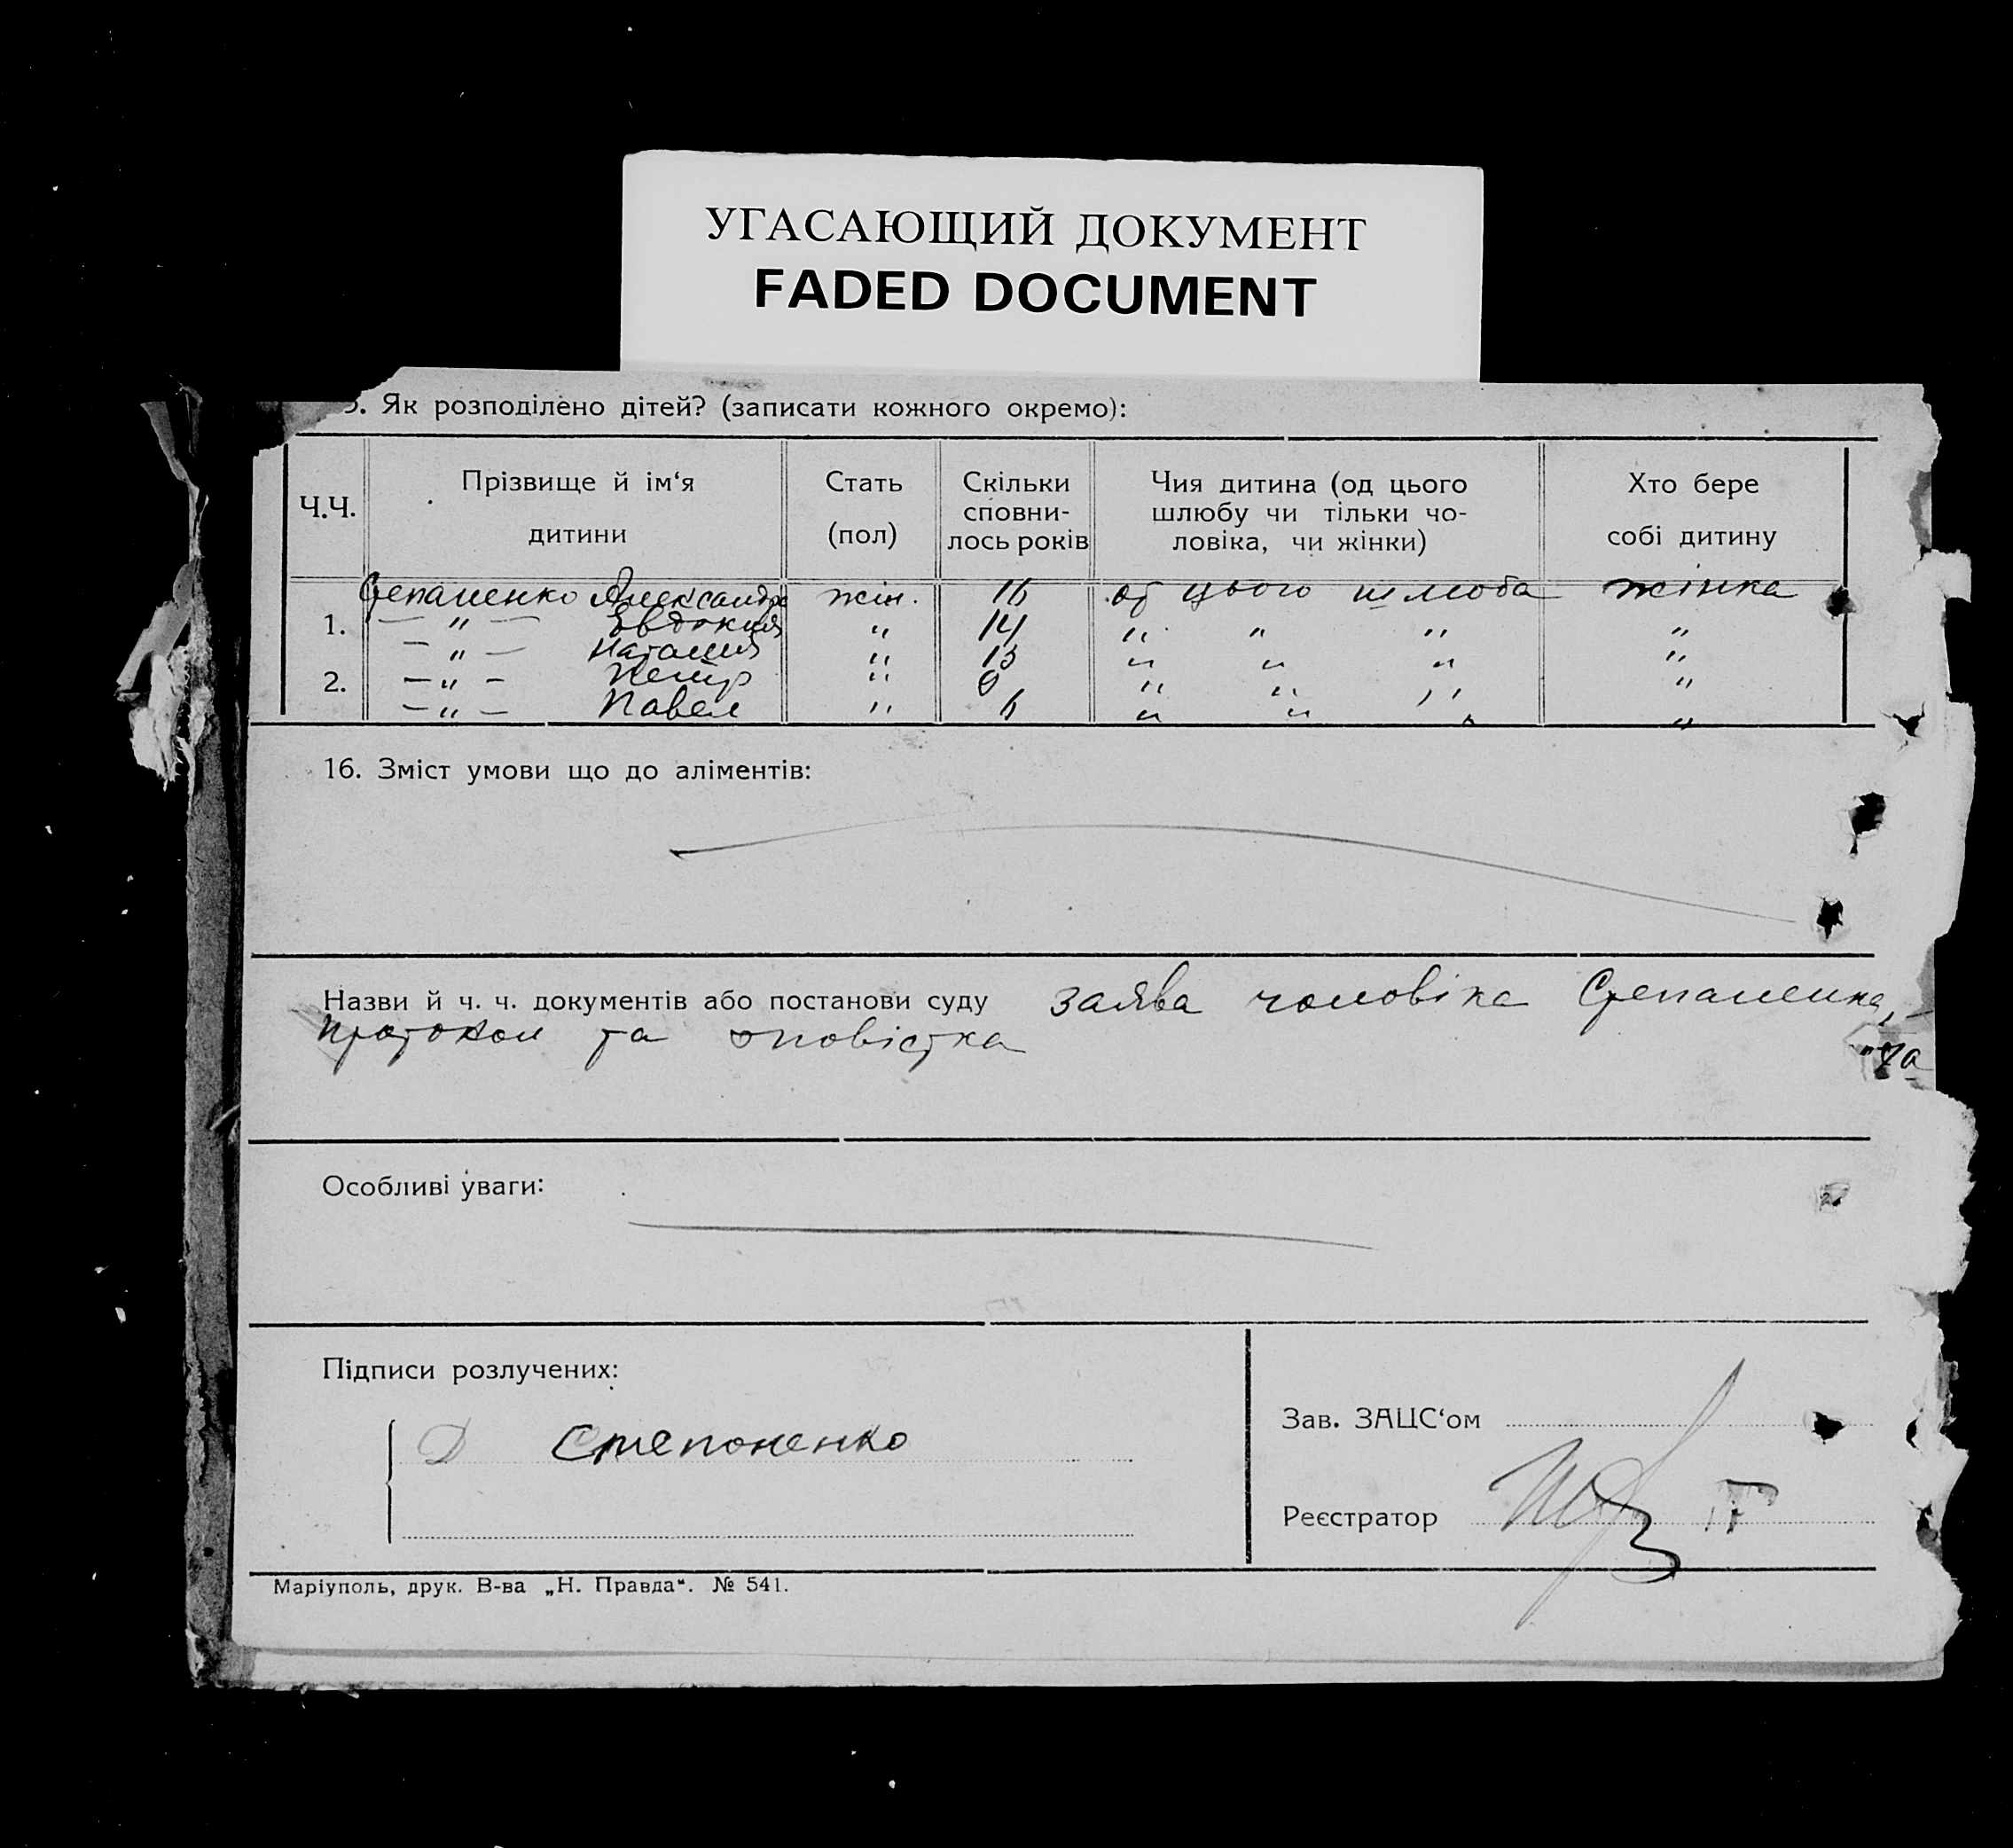 УГАСАЮЩИЙ ДОКУМЕНТ
FADED DOCUMENT
5. Як розподілено дітей? (записати кожного окремо):
Ч.Ч. Прізвище й ім‘я дитини Стать (пол) Скільки сповни- лось років Чия дитина (од цього шлюбу чи тільки чо- ловіка, чи жінки) Хто бере собі дитину
Степаненко Александра жін. 16 од цього шлюба жінка
1. — " — Євдокия " 14 " " " "
— " — Наталия " 13 " " " "
2. — " — Петр " 9 " " " "
— " — Павел " 6 " " " "
16. Зміст умови що до аліментів:
Назви й ч. ч. документів або постанови суду заява чоловіка Степаненка,
протокол та оповістка
Особливі уваги:
Підписи розлучених:
Д Степоненко
Зав. ЗАЦС‘ом
Реєстратор
Маріуполь, друк. В-ва „Н. Правда“. № 541.